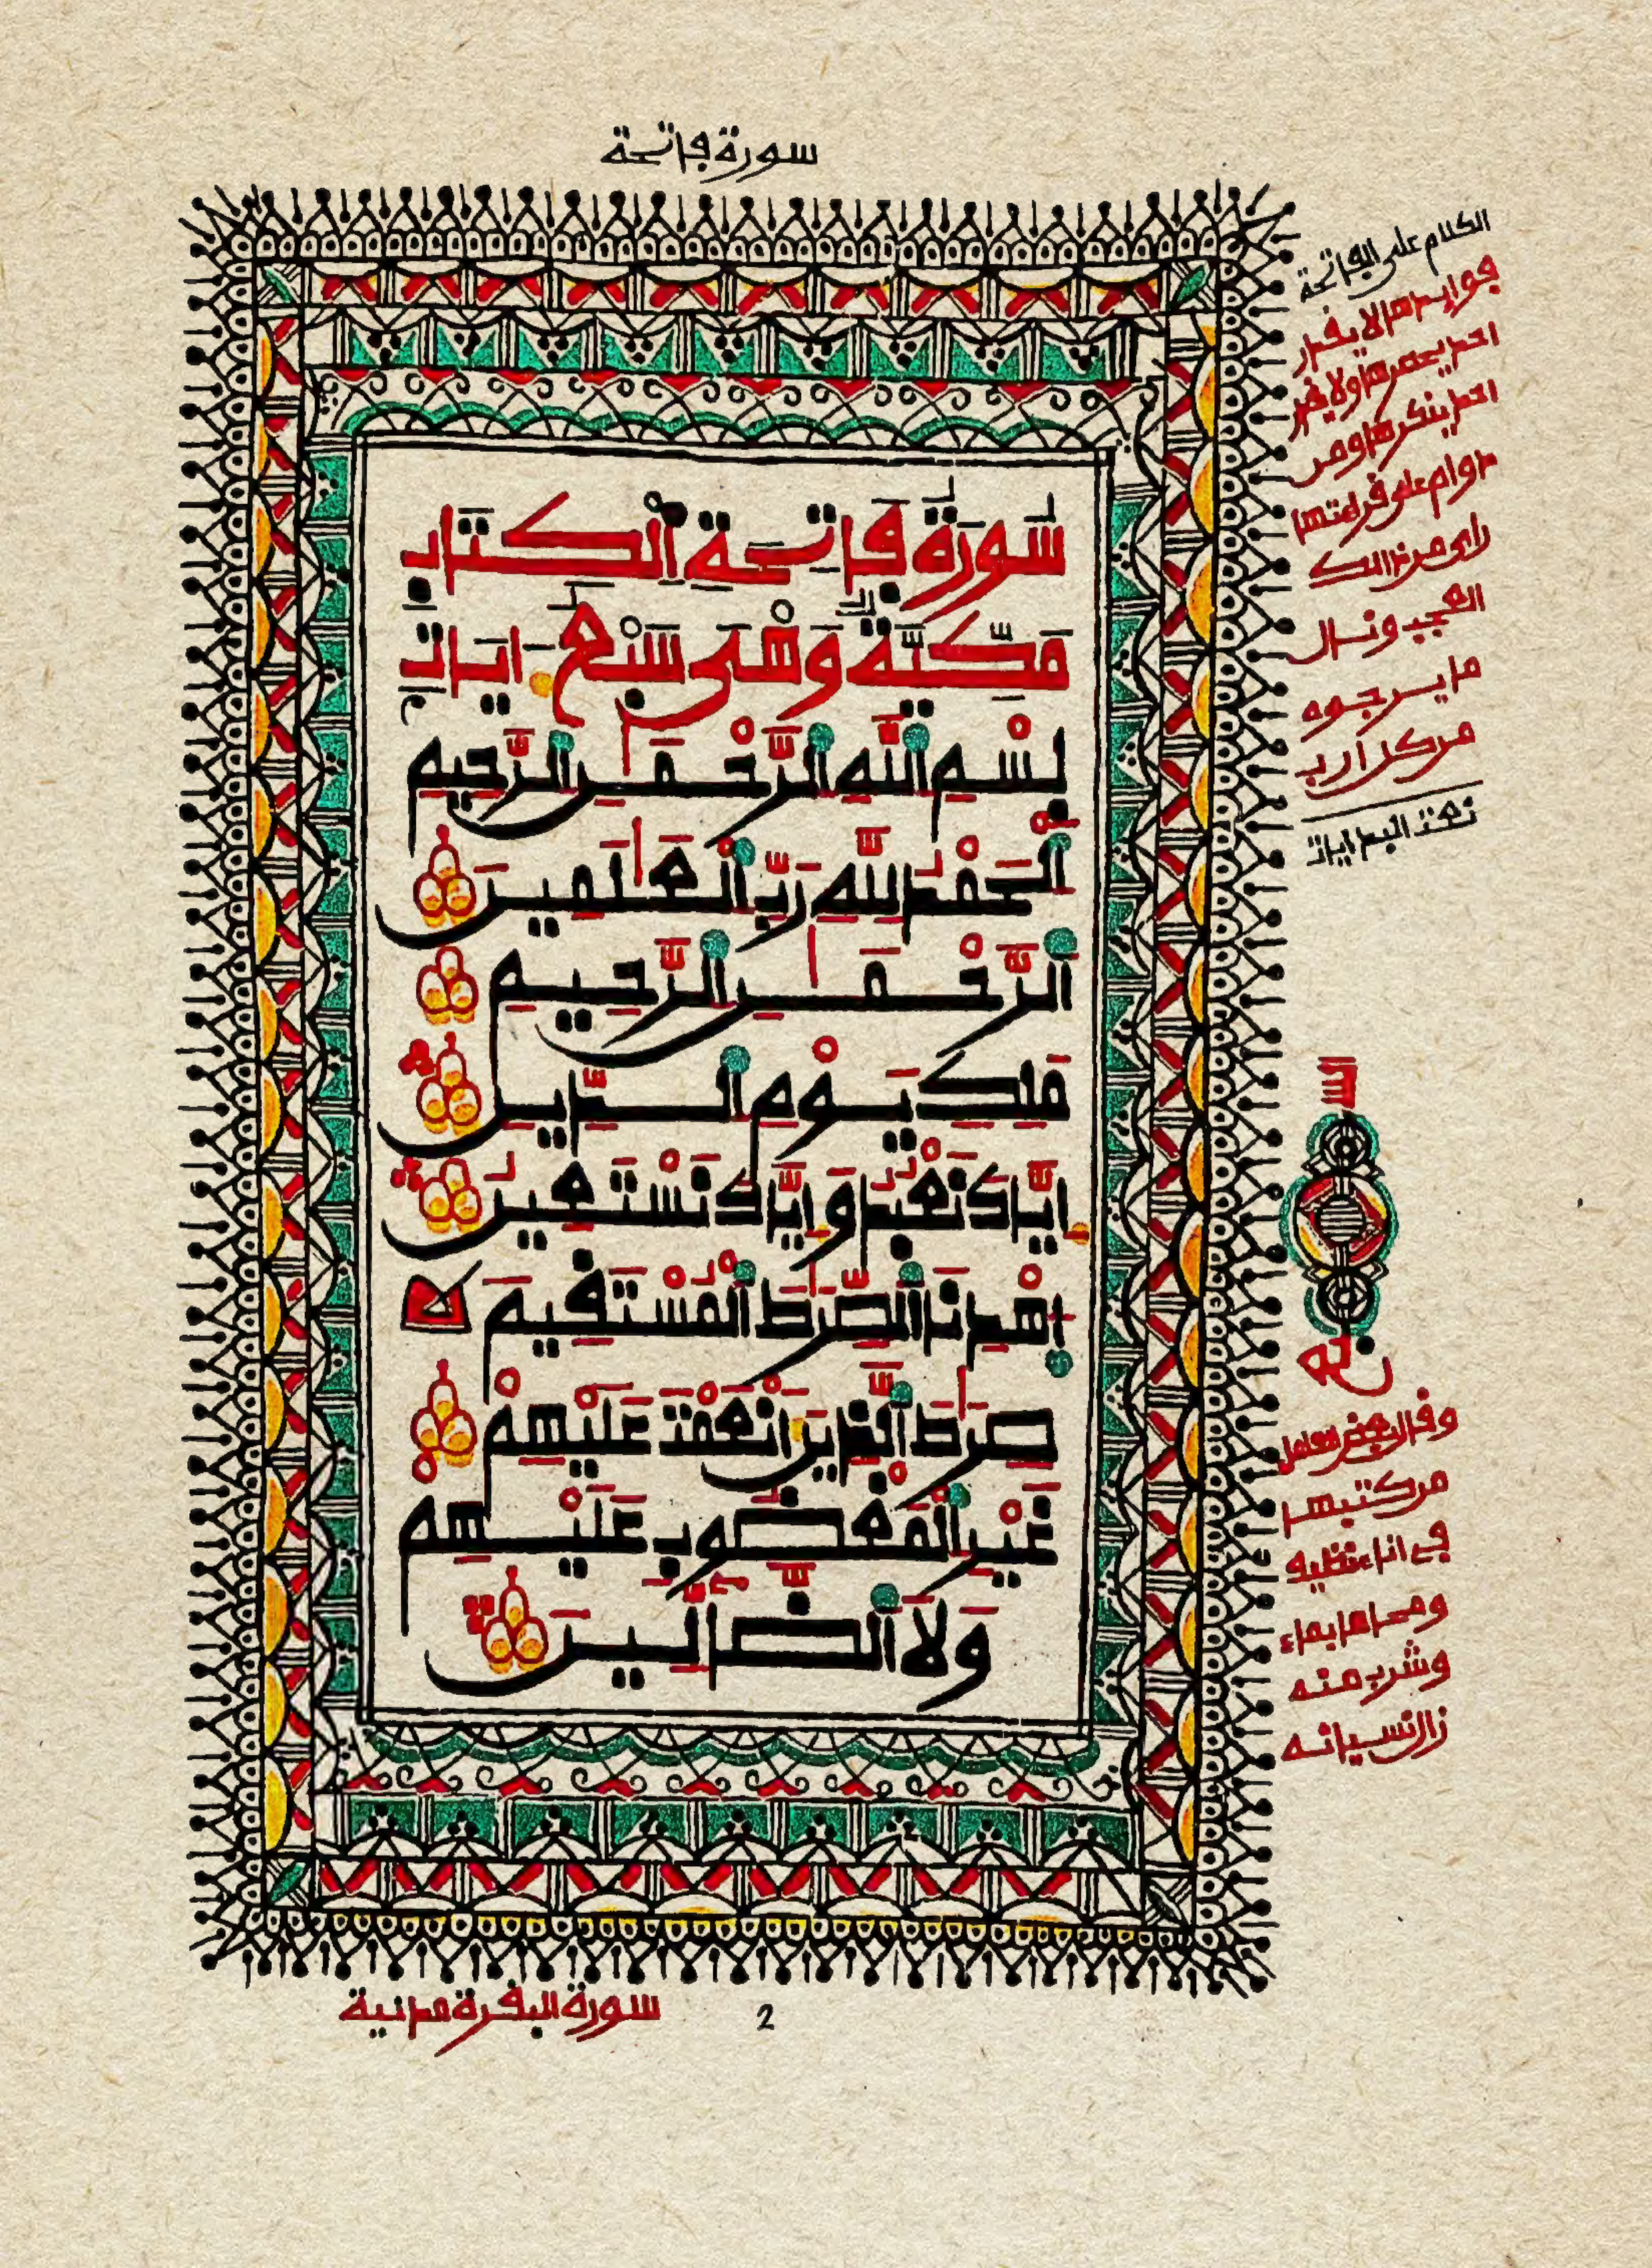 سورة فاتحة
سُورَةُ فَاتِحَةِ اَلْكِتَابِ
مَكِّيَّةٌ وَهْىَ سَبْعُ ءايَاتٍ
بِسْمِ اِللَّهِ اِلرَّحْمَٰنِ اِلرَّحِيمِ
اَلْحَمْدُ لِلَّهِ رَبِّ اِلْعَٰلَمِينَ
اَلرَّحْمَٰنِ اِلرَّحِيمِ
مَلِكِ يَوْمِ اِلدِّينِ
إِيَّاكَ نَعْبُدُ وَإِيَّاكَ نَسْتَعِينُ
اُهْدِنَا اَلصِّرَٰطَ اَلْمُسْتَقِيمَ
صِرَٰطَ اَلَّذِينَ أَنْعَمْتَ عَلَيْهِمْ
غَيْرِ اِلْمَغْضُوبِ عَلَيْهِمْ
وَلَا اَلضَّآلِّينَ
الكلام على الفاتحة
فوايدها لا يقدر
احد يحصرها ولا يقدر
احد ينكرها ومن
دوام على قراءتها
راى من ذالك
العجب ونال
ما يرجوه
من كل ارب
وقال بعضهم
من كتبها
في اناء نظيف
ومحاها بماء
وشرب منه
زال نسيانه
سورة البقرة مدنية
2